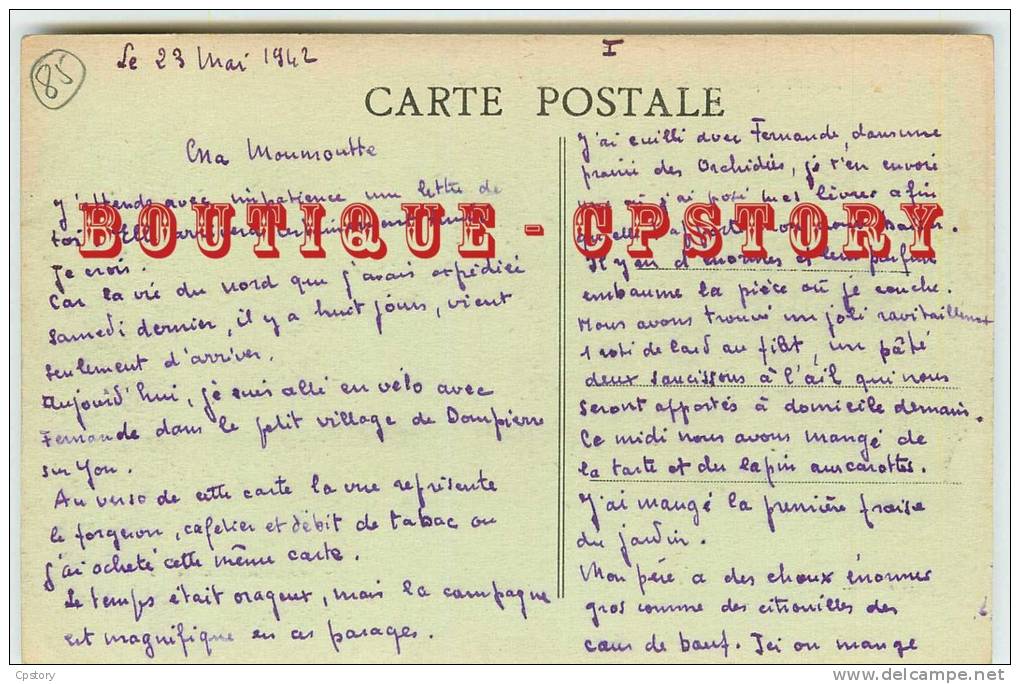 85
Le 23 Mai 1942
I
CARTE POSTALE
Ma Moumoutte
J'attends avec impatience une lettre de
toi. Elle arrivera
je crois.
Car la vie du nord que j'avais expédiée
samedi dernier, il y a huit jours, vient
seulement d'arriver.
Aujourd'hui, je suis allé en vélo avec
Fernande dans le petit village de Dompierre
sur Yon.
Au verso de cette carte la vue représente
le forgeron, cafetier et débit de tabac ou
j'ai acheté cette même carte.
Le temps était orageux, mais la campagne
est magnifique en ces parages.
J'ai cuilli avec Fernande, dans une
prairie des Orchidées, je t'en envoie
une où j'ai posé mes lèvres afin
qu'elle t'apporte mon doux baiser.
Il y en a d'énormes et leur parfum
embaume la pièce où je couche.
Nous avons trouvé un joli ravitaillement
1 roti de lard au filet, un pâté
deux saucissons à l'ail qui nous
seront apportés à domicile demain.
Ce midi nous avons mangé de
la tarte et du lapin aux carottes.
J'ai mangé la première fraise
du jardin.
Mon père a des choux énormes
gros comme des citrouilles des
cœurs de bœuf. Ici on mange
BOUTIQUE - CPSTORY
Cpstory
delcampe.net